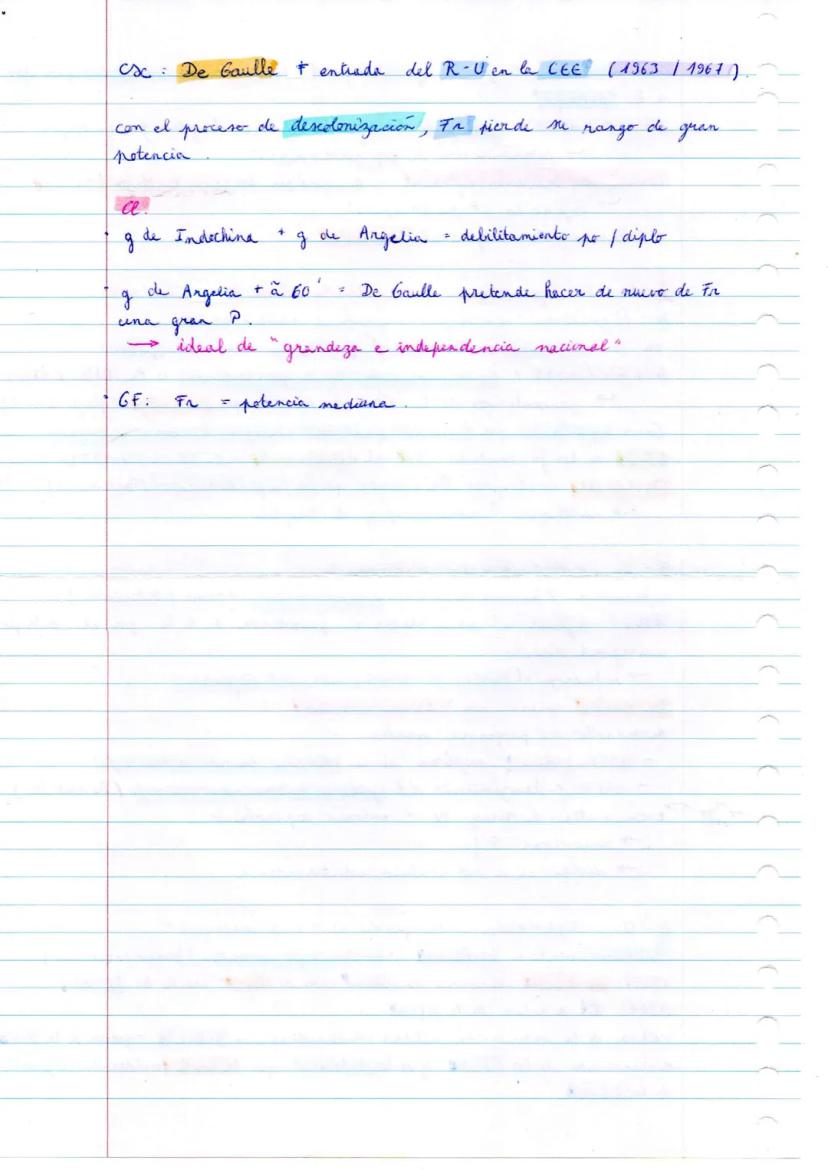 csc : De Gaulle ≠ entrada del R-U en la CEE (1963 / 1967).
con el proceso de descolonización, Fr pierde su rango de gran
potencia.
cl.
• g de Indochina + g de Argelia = debilitamiento po / diplo
• g de Argelia + ã 60' = De Gaulle pretende hacer de nuevo de Fr
una gran P.
→ ideal de "grandeza e independencia nacional"
• GF: Fr = potencia mediana.